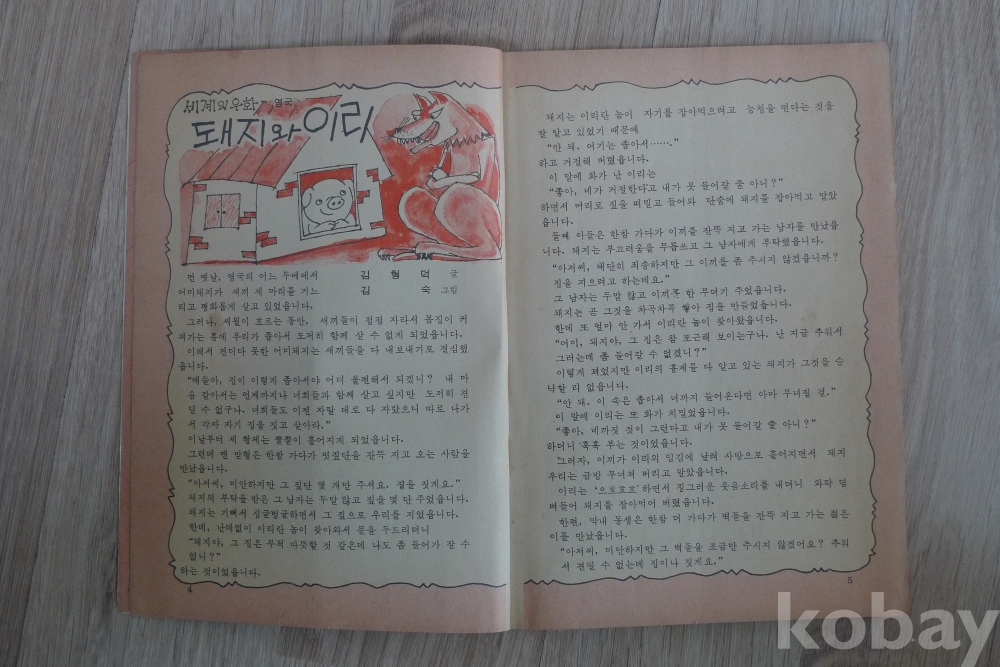 세계의 우화 - 영국
돼지와 이리
김 형 덕 글
김 숙 그림
먼 옛날, 영국의 어느 두메에서
어미돼지가 새끼 세 마리를 거느
리고 평화롭게 살고 있었읍니다.
그러나, 세월이 흐르는 동안, 새끼들이 점점 자라서 몸집이 커
져가는 통에 우리가 좁아서 도저히 함께 살 수 없게 되었읍니다.
이래서 견디다 못한 어미돼지는 새끼들을 다 내보내기로 결심했
읍니다.
“얘들아, 집이 이렇게 좁아서야 어디 불편해서 되겠니? 내 마
음 같아서는 언제까지나 너희들과 함께 살고 싶지만 도저히 견
딜 수 없구나. 너희들도 이젠 자랄 대로 다 자랐으니 따로 나가
서 각자 자기 집을 짓고 살아라.”
이날부터 세 형제는 뿔뿔이 흩어지게 되었읍니다.
그런데 맨 맏형은 한참 가다가 볏짚단을 잔뜩 지고 오는 사람을
만났읍니다.
“아저씨, 미안하지만 그 짚단 몇 개만 주셔요. 집을 짓게요.”
돼지의 부탁을 받은 그 남자는 두말 않고 짚을 몇 단 주었읍니다.
돼지는 기뻐서 싱글벙글하면서 그 짚으로 우리를 지었읍니다.
한데, 난데없이 이리란 놈이 찾아와서 문을 두드리더니
“돼지야, 그 집은 무척 따뜻할 것 같은데 나도 좀 들어가 잘 수
없니?”
하는 것이었읍니다.
4
돼지는 이리란 놈이 자기를 잡아먹으려고 능청을 떤다는 것을
잘 알고 있었기 때문에
“안 돼. 여기는 좁아서…….”
하고 거절해 버렸읍니다.
이 말에 화가 난 이리는
“좋아, 네가 거절한다고 내가 못 들어갈 줄 아니?”
하면서 머리로 짚을 떠밀고 들어와 단숨에 돼지를 잡아먹고 말았
읍니다.
둘째 아들은 한참 가다가 이끼를 잔뜩 지고 가는 남자를 만났읍
니다. 돼지는 부끄러움을 무릅쓰고 그 남자에게 부탁했읍니다.
“아저씨, 대단히 죄송하지만 그 이끼를 좀 주시지 않겠읍니까?
집을 지으려고 하는데요.”
그 남자는 두말 않고 이끼를 한 무더기 주었읍니다.
돼지는 곧 그것을 차곡차곡 쌓아 집을 만들었읍니다.
한데 또 얼마 안 가서 이리란 놈이 찾아왔읍니다.
“어이, 돼지야, 그 집은 참 포근해 보이는구나. 난 지금 추워서
그러는데 좀 들어갈 수 없겠니?”
이렇게 꾀었지만 이리의 흉계를 다 알고 있는 돼지가 그것을 승
낙할 리 없읍니다.
“안 돼. 이 속은 좁아서 너까지 들어온다면 아마 무너질 걸.”
이 말에 이리는 또 화가 치밀었읍니다.
“좋아, 네까짓 것이 그런다고 내가 못 들어갈 줄 아니?”
하더니 훅훅 부는 것이었읍니다.
그러자, 이끼가 이리의 입김에 날려 사방으로 흩어지면서 돼지
우리는 금방 무너져 버리고 말았읍니다.
이리는 ‘으흐흐흐’하면서 징그러운 웃음소리를 내더니 와락 덤
벼들어 돼지를 잡아먹어 버렸읍니다.
한편, 막내 동생은 한참 더 가다가 벽돌을 잔뜩 지고 가는 젊은
이를 만났읍니다.
“아저씨, 미안하지만 그 벽돌을 조금만 주시지 않겠어요? 추워
서 견딜 수 없는데 집이나 짓게요.”
5
kobay